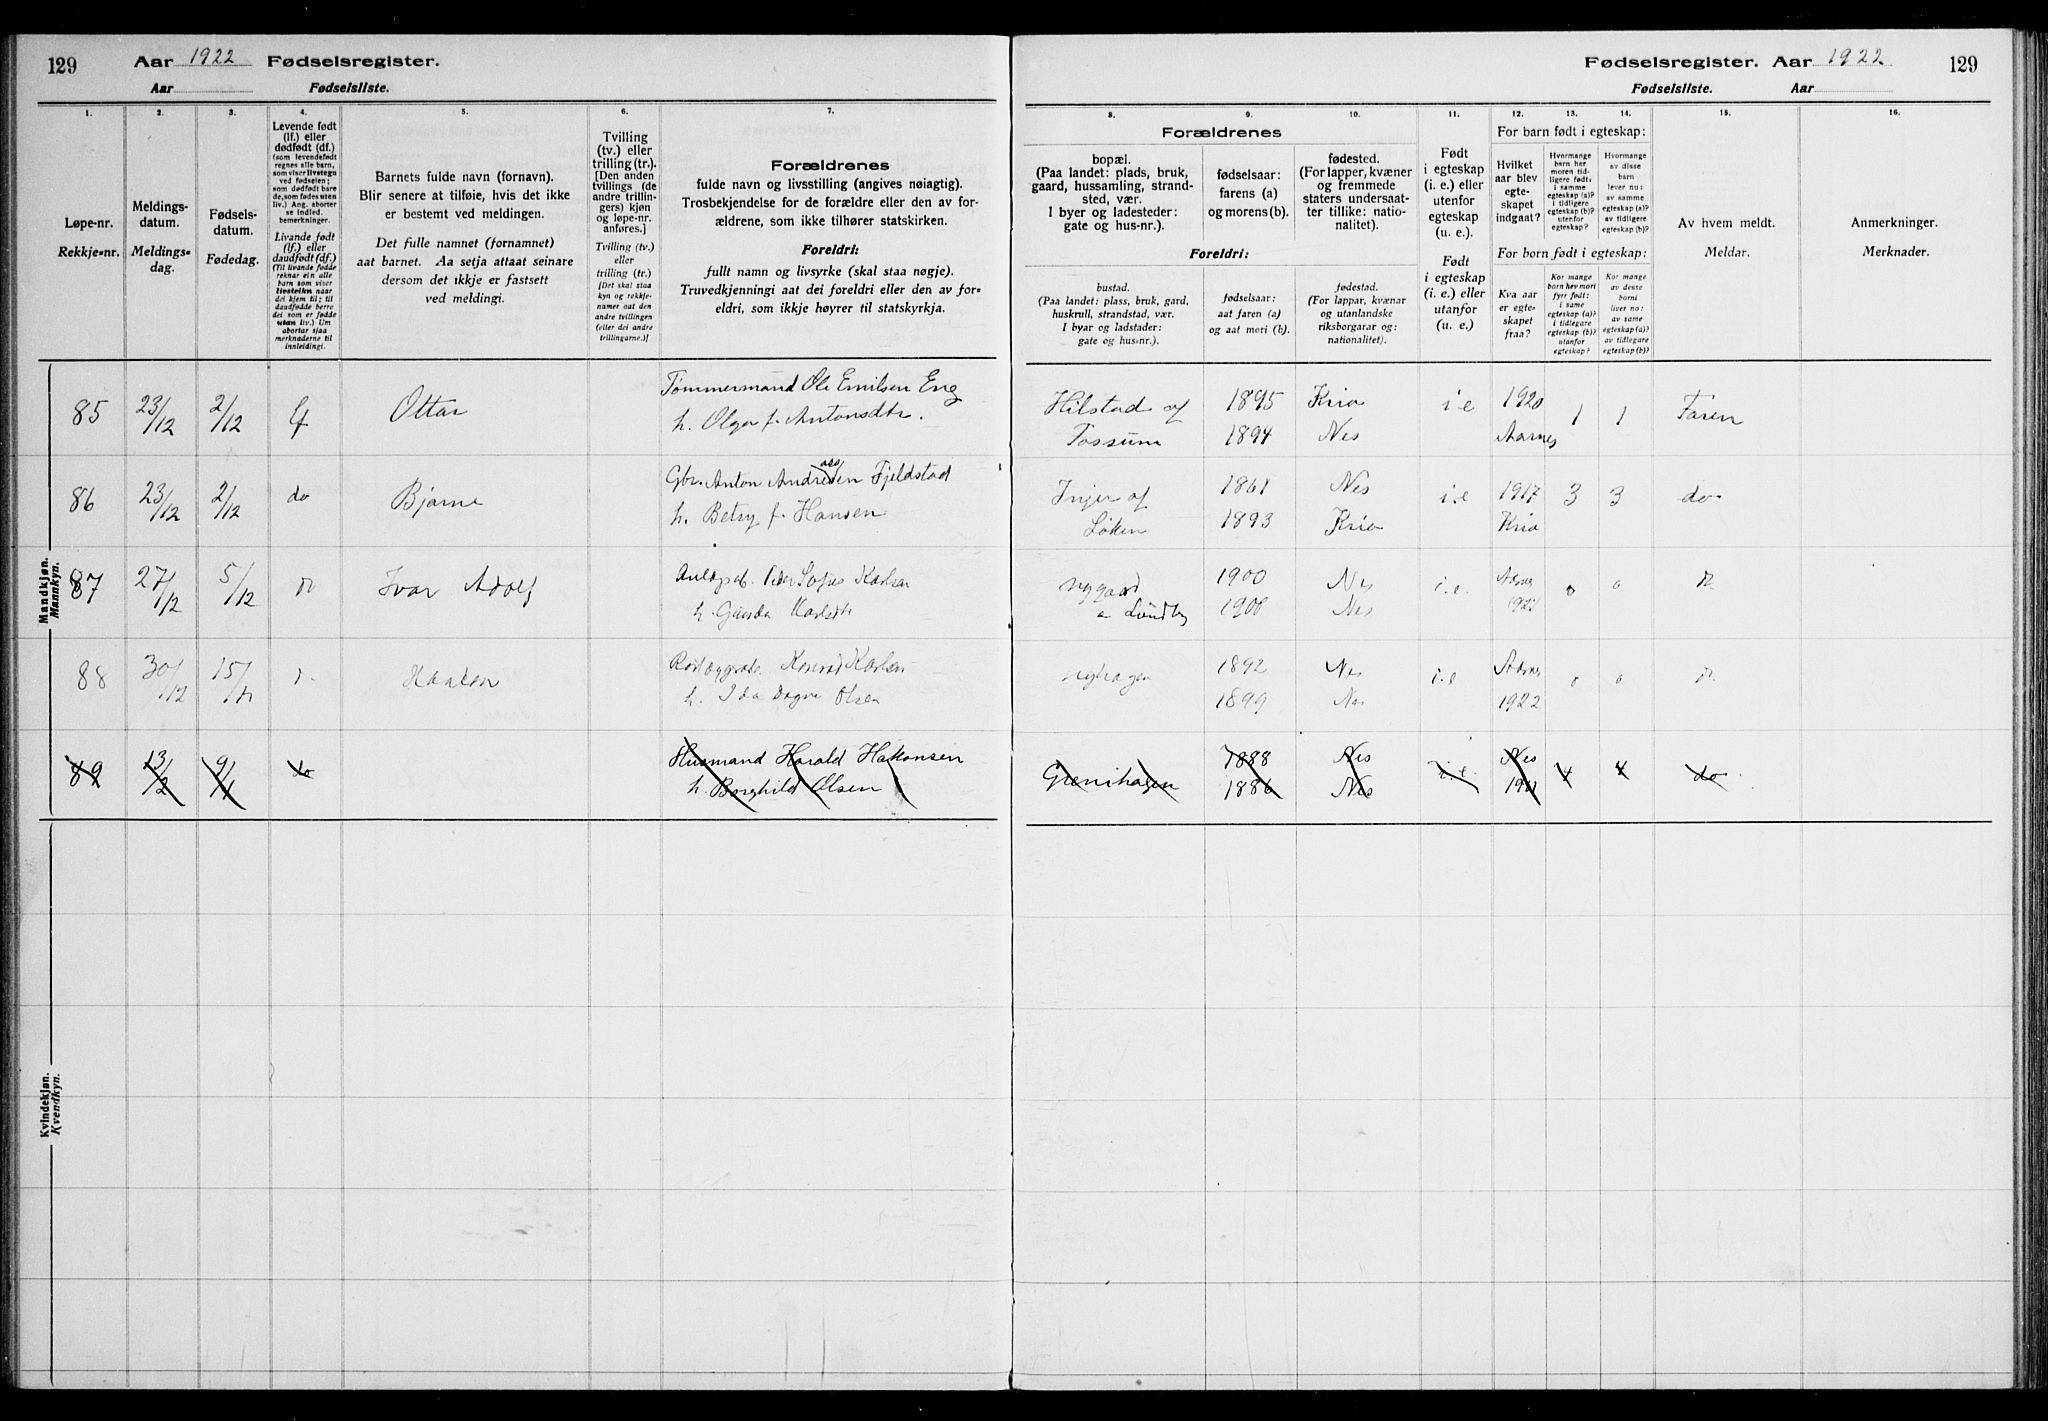 129
Aar 1922 Fødselsregister.
Aar Fødselsliste.
1.
2.
3.
4.
5.
6.
7.
Løpe-nr.
Rekkje-nr.
Meldings-
datum.
Meldings-
dag.
Fødsels-
datum.
Fødedag.
Levende født
(lf.) eller
dødfødt (df.)
(som levendefødt
regnes alle barn,
som viser livstegn
ved fødselen;
som dødfødt bare
de, som fødes uten
liv.) Ang. aborter
se indled.
bemerkninger.
Livande født
(lf.) eller
daudfødt (df.)
(Til livande fødde
reknar ein alle
barn som viser
livsteikn naar
dei kjem til; til
daudfødde berre
dei som er fødde
utan liv.) Um
abortar sjaa
merknaderne til
innleidingi.
Barnets fulde navn (fornavn).
Blir senere at tilføie, hvis det ikke
er bestemt ved meldingen.
Det fulle namnet (fornamnet)
aat barnet. Aa setja attaat seinare
dersom det ikkje er fastsett
ved meldingi.
Tvilling
(tv.) eller
trilling (tr.).
[Den anden
tvillings (de
andre trillin-
gers) kjøn
og løpe-nr.
anføres.]
Tvilling (tv.)
eller
trilling (tr.)
[Det skal staa
kyn og rekkje-
numer aat den
andre tvillingen
(eller dei andre
trillingarne.)]
Forældrenes
fulde navn og livsstilling (angives nøiagtig).
Trosbekjendelse for de forældre eller den av for-
ældrene, som ikke tilhører statskirken.
Foreldri:
fullt namn og livsyrke (skal staa nøgje).
Truvedkjenningi aat dei foreldri eller den av for-
eldri, som ikkje høyrer til statskyrkja.
Mandkjøn.
Mannkyn.
85 23/12 2/12 lf Ottar
Tømmermand Ole Emilsen Eng
h. Olga f. Antonsdtr.
86 23/12 2/12 do Bjarne
Gbr. Anton Andresen Fjeldstad
h. Betsy f. Hansen
87 27/12 5/12 Ivar Adolf
Peder Sofus Karlsen
h. Gunda Karlsdtr
88 30/12 15/ Haakon
Konrad Karlsen
h. Ida Dagny Olsen
89 13/2 9/1 do
Husmand Harald Hakonsen
h. Borghild Olsen
Kvindekjøn.
Kvendkyn.
Fødselsregister. Aar 1922
129
Fødselsliste. Aar
8.
9.
10.
11.
12.
13.
14.
15.
16.
Forældrenes
bopæl.
(Paa landet: plads, bruk,
gaard, hussamling, strand-
sted, vær.
I byer og ladesteder:
gate og hus-nr.).
fødselsaar:
farens (a)
og morens (b).
fødested.
(For lapper, kvæner
og fremmede
staters undersaat-
ter tillike: natio-
nalitet).
Foreldri:
bustad.
(Paa landet: plass, bruk, gard,
huskrull, strandstad, vær.
I byar og ladstader:
gate og hus-nr.).
fødselsaar:
aat faren (a)
og aat mori (b).
fødestad.
(For lappar, kvænar
og utanlandske
riksborgarar og:
nationalitet).
Født
i egteskap
(i. e.) eller
utenfor
egteskap
(u. e.).
Født
i egteskap
(i. e.) eller
utanfor
(u. e.)
For barn født i egteskap:
Hvilket
aar blev
egte-
skapet
indgaat?
Hvormange
barn har
moren tid-
ligere født,
i samme
egteskap (a)?
i tidligere
egteskap (b)?
utenfor
egteskap?
Hvormange
av disse
barn
lever nu:
av samme
egteskap (a)?
av tidligere
egteskap (b)?
For born født i egteskap:
Kva aar
er egte-
skapet
fraa?
Kor mange
born hev mori
fyrr født:
i same
egteskap (a)?
i tidlegare
egteskap (b)?
utanfor
egteskap?
Kor mange
av desse
borni
liver no:
av same
egteskap (a)?
av tidlegare
egteskap (b)?
Av hvem meldt.
Meldar.
Anmerkninger.
Merknader.
Hilstad af 1895 Kria i.e 1920 1 1 Faren
Fossum 1894 Nes Aarnes
Injer af 1861 Nes i.e 1917 3 3 do
Løken 1893 Kria Kria
Nygaard 1900 Nes i.e. Aarnes 0 0
Lundby 1900 Nes
Nyhagen 1892 Nes i.e Aarnes 0 0
1899 Nes 1922
Grenihagen 1888 Nes i.e. Nes 4 4 do
1886 Nes